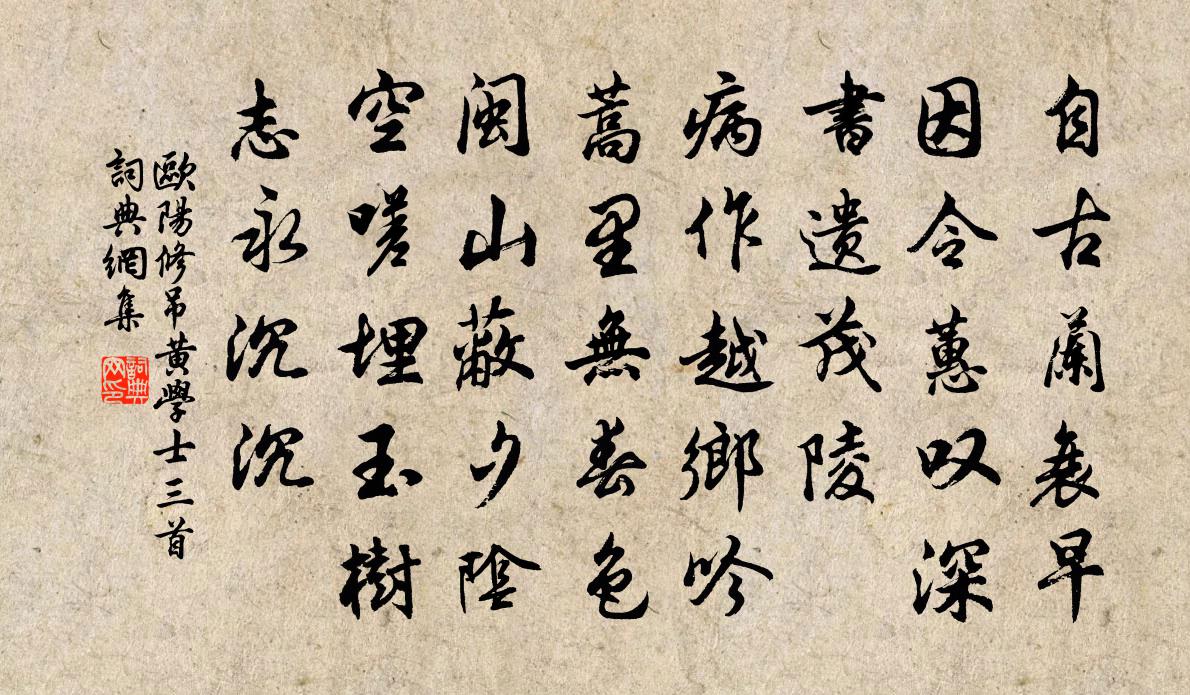 自古蘭衰早
因令蕙叹深
書遗茂陵
病作越鄉吟
蒿里無春色
闽山蔽夕陰
空嗟埋玉樹
志永沉沉
歐陽修吊黄學士三首
詞典網集
詞典
网印